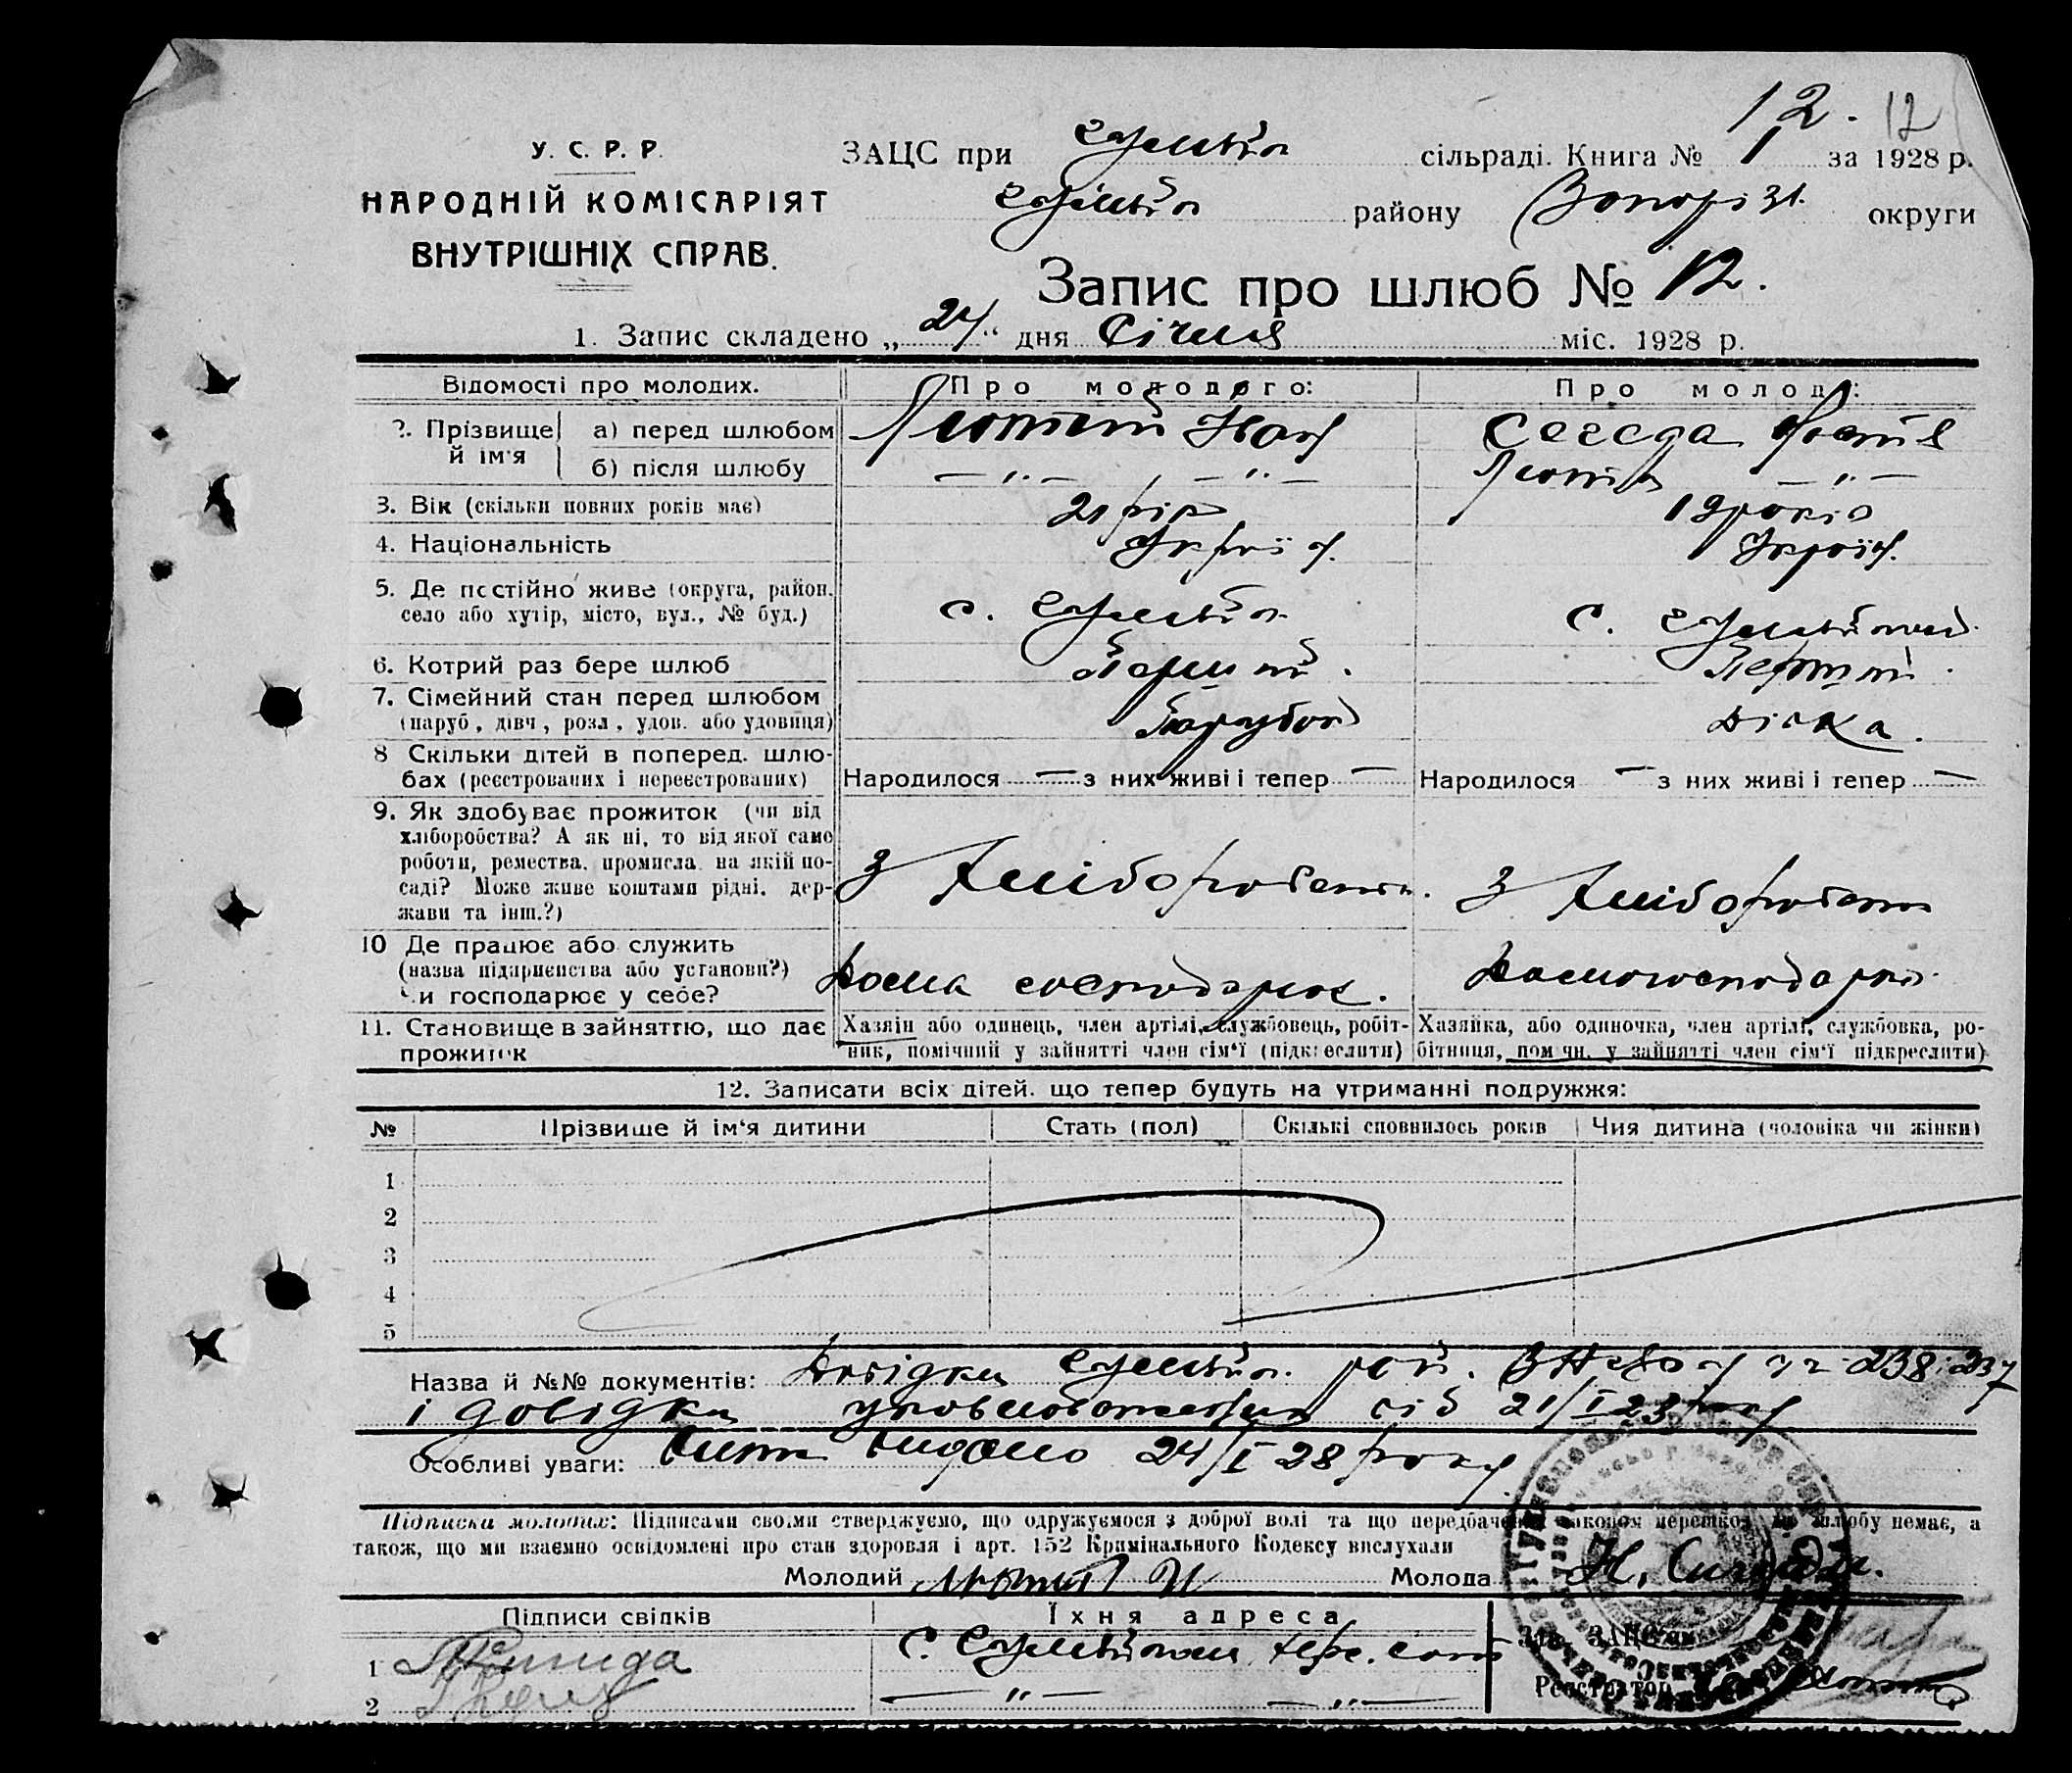 12. 12
У. С. Р. Р.
НАРОДНІЙ КОМІСАРІЯТ
ВНУТРІШНІХ СПРАВ.
ЗАЦС при сільраді. Книга № 1 за 1928 р.
району Запоріз. округи
Запис про шлюб № 12.
1. Запис складено „ 24 “ дня Січня міс. 1928 р.
Відомості про молодих. Про молодого: Про молоду:
2. Прізвище й ім'я а) перед шлюбом Лютий Іван
б) після шлюбу — „ — — „ — Люта — „ —
3. Вік (скільки повних років має) 21 рік 19 років
4. Національність Україн. Україн.
5. Де постійно живе (округа, район, село або хутір, місто, вул., № буд.) с. с.
6. Котрий раз бере шлюб Перший. Перший.
7. Сімейний стан перед шлюбом (паруб., дівч., розл., удов. або удовиця) Парубок Дівка.
8 Скільки дітей в поперед. шлюбах (реєстрованих і нереєстрованих) Народилося — з них живі і тепер — Народилося — з них живі і тепер —
9. Як здобуває прожиток (чи від хліборобства? А як ні, то від якої саме роботи, ремества, промисла, на якій посаді? Може живе коштами рідні, держави та інш.?) З Хліборобства. З Хліборобства
10 Де працює або служить (назва підприємства або установи?) Чи господарює у себе? Дома господарює. Домогосподарка.
11. Становище в зайняттю, що дає прожиток Хазяїн або одинець, член артілі, службовець, робітник, помічний у зайнятті член сім'ї (підкреслити) Хазяйка, або одиночка, член артілі, службовка, робітниця, помічн. у зайнятті член сім'ї підкреслити)
12. Записати всіх дітей, що тепер будуть на утриманні подружжя:
№ Прізвище й ім'я дитини Стать (пол) Скількі сповнилось років Чия дитина (чоловіка чи жінки)
1
2
3
4
5
Назва й №№ документів: Довідки рай. 238: 237
і довідки від 21/I 23 року
Особливі уваги: видано 24/I 28 року.
Підписка молодих: Підписами своїми стверджуємо, що одружуємося з доброї волі та що передбачених законом перешкод до шлюбу немає, а
також, що ми взаємно освідомлені про стан здоров'я і арт. 152 Кримінального Кодексу вислухали
Молодий Лютий И Молода
Підписи свідків Їхня адреса
Зав. ЗАЦС'ом
1 С.
2 — „ — — „ —
Реєстратор